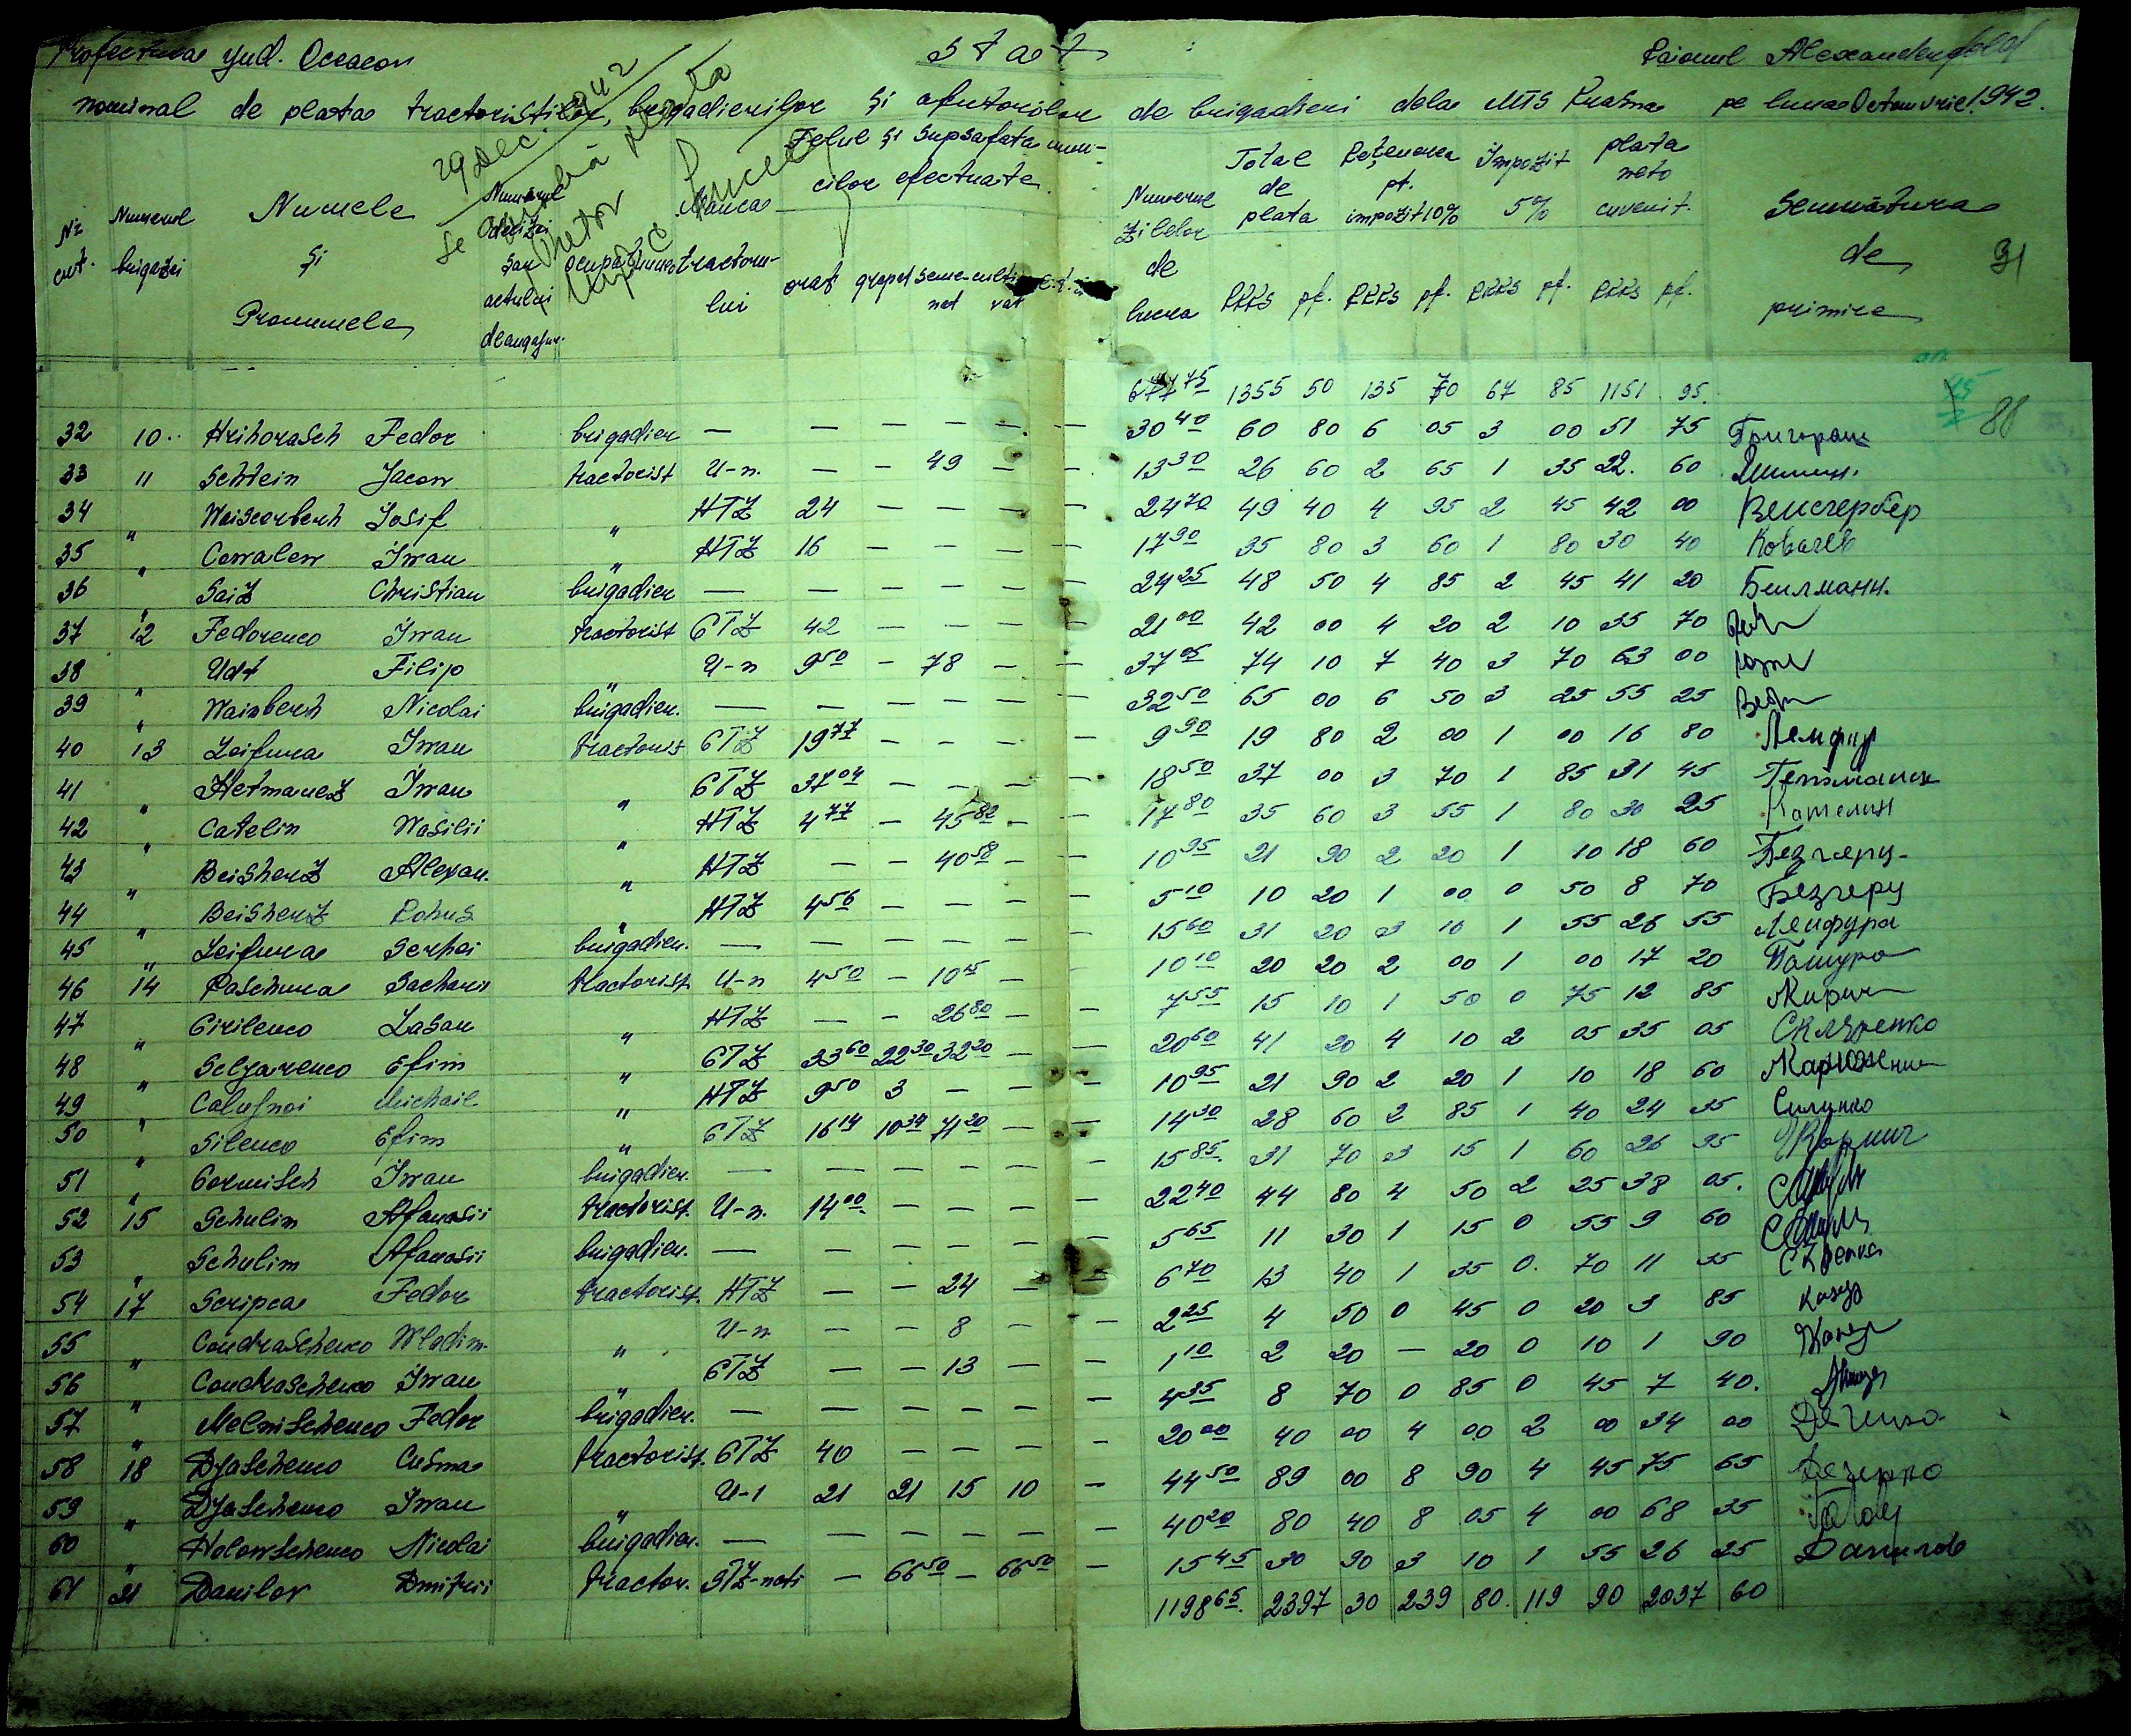 Prefectura jud. Oceacov Stat Raionul Alexanderfeld
nominal de plata tractoristilor, brigadierilor și ajutorilor de brigadieri dela MTS Krasna pe luna Octomvrie 1942.
29 Dec. 942
Se aprobă plata
Pretor
Nr. crt.
Numerul brigăzei
Numele și Pronumele
Numărul deciziei sau actului de angajar.
ocupațiunea
Marca tractorului
Felul și supsafata muncilor efectuate
arat grapat semenat cultivat
Numerul zilelor de lucru
Total de plata RKKS pf.
Rețenerea pt. impozit 10% RKKS pf.
Impozit 5% RKKS pf.
plata neto cuvenit. RKKS pf.
Semnătura de primire
31
677 75 1355 50 135 70 67 85 1151 95.
88
32 10 Hrihorasch Fedor brigadier — — — — — — 30 40 60 80 6 05 3 00 51 75 Григораш
33 11 Schtein Jacow tractorist U-n. — — 49 — — 13 30 26 60 2 65 1 35 22. 60
34 " Waiscerberh Iosif " HTZ 24 — — — — 24 70 49 40 4 95 2 45 42 00 Веисчербер
35 " Cowalew Iwan " HTZ 16 — — — — 17 90 35 80 3 60 1 80 30 40 Ковалев
36 " Saiz Christian brigadier — — — — — — 24 25 48 50 4 85 2 45 41 20
37 12 Fedorenco Iwan tractorist CTZ 42 — — — — 21 00 42 00 4 20 2 10 35 70
38 " Udt Filip " U-n 9 50 — 78 — — 37 05 74 10 7 40 3 70 63 00
39 " Wainberh Nicolai brigadier. — — — — — — 32 50 65 00 6 50 3 25 55 25
40 13 Leifura Iwan tractorist CTZ 19 77 — — — — 9 90 19 80 2 00 1 00 16 80
41 " Hetmanez Iwan " CTZ 37 04 — — — — 18 50 37 00 3 70 1 85 31 45
42 " Catelin Wasilii " HTZ 4 77 — 45 82 — — 17 80 35 60 3 55 1 80 30 25 Кателин
43 " Beisherz Alexan. " HTZ — — 40 58 — — 10 95 21 90 2 20 1 10 18 60 Безгеру
44 " Beisherz Rohus " HTZ 4 56 — — — — 5 10 10 20 1 00 0 50 8 70 Безгеру
45 " Leifura Serhei brigadier. — — — — — — 15 60 31 20 3 10 1 55 26 55 Леифура
46 14 Paschura Sacharii tractorist U-n 4 50 — 10 15 — 10 10 20 20 2 00 1 00 17 20 Пашура
47 " Cirilenco Lasan " HTZ — — 26 80 — — 7 55 15 10 1 50 0 75 12 85
48 " Sclyarenco Efim " CTZ 33 60 22 30 32 20 — — 20 60 41 20 4 10 2 05 35 05 Скляренко
49 " Calujnoi Michail " HTZ 9 50 3 — — — 10 95 21 90 2 20 1 10 18 60
50 " Silenco Efim " CTZ 16 14 10 34 71 20 — — 14 30 28 60 2 85 1 40 24 35 Силинко
51 " Cormisch Iwan brigadier. — — — — — — 15 85. 31 70 3 15 1 60 26 95
52 15 Schulim Afanasii tractorist. U-n. 14 00 — — — — 22 40 44 80 4 50 2 25 38 05.
53 " Schulim Afanasii brigadier. — — — — — — 5 65 11 30 1 15 0 55 9 60
54 17 Scripca Fedor tractorist. HTZ — — 24 — — 6 70 13 40 1 35 0. 70 11 35
55 " Condraschenco Wladim. " U-n — — 8 — — 2 25 4 50 0 45 0 20 3 85
56 " Condraschenco Iwan " CTZ — — 13 — — 1 10 2 20 — 20 0 10 1 90
57 " Melnischenco Fedor brigadier. — — — — — — 4 35 8 70 0 85 0 45 7 40.
58 18 Djaschenco Cusma tractorist. CTZ 40 — — — — 20 00 40 00 4 00 2 00 34 00
59 " Djaschenco Iwan " U-1 21 21 15 10 — 44 50 89 00 8 90 4 45 75 65
60 " Holowschenco Nicolai brigadier. — — — — — — 40 20 80 40 8 05 4 00 68 35
61 21 Danilov Dmitrii tractor. STZ-nati — 66 50 — 66 50 — 15 45 30 90 3 10 1 55 26 25 Данилов
1198 65. 2397 30 239 80. 119 90 2037 60